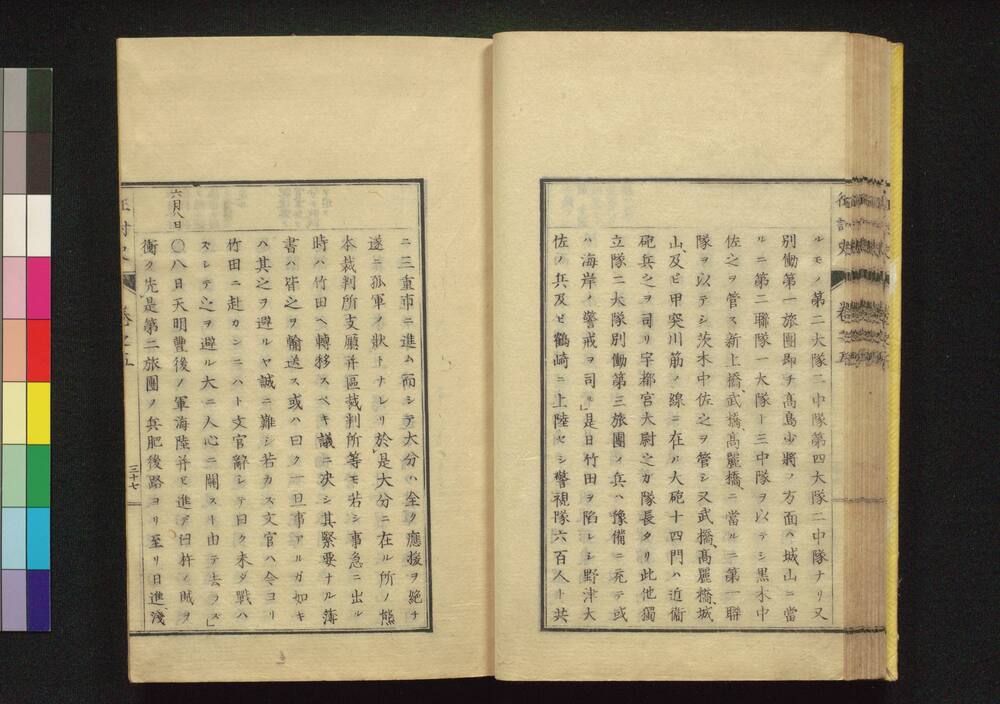 ルモノ第二大隊二中隊第四大隊二中隊ナリ又
別働第一旅團即チ高島少將ノ方面ハ城山ニ當
ルニ第二聯隊一大隊ト三中隊ヲ以テシ黒木中
佐之ヲ管ス新上橋、武橋、高麗橋、ニ當ルニ第一聯
隊ヲ以テシ茨木中佐之ヲ管シ又武橋、高麗橋、城
山、及ビ甲突川筋ノ線ニ在ル大砲十四門ハ近衞
砲兵之ヲ司リ宇都宮大尉之カ隊長タリ此他獨
立隊二大隊別働第三旅團ノ兵ハ豫備ニ充テ或
ハ海岸ノ警戒ヲ司ル」是日竹田ヲ陷レシ野津大
佐ノ兵及ビ鶴崎ニ上陸セシ警視隊六百人ト共
征討史 卷之五
ニ三重市ニ進ム而シテ大分ハ全ク應援ヲ絶チ
遂ニ孤軍ノ狀トナレリ於是大分ニ在ル所ノ熊
本裁判所支廳并區裁判所等モ若シ事急ニ出ル
時ハ竹田ヘ轉移スベキ議ニ决シ其緊要ナル薄
書ハ皆之ヲ輸送ス或ハ曰ク一旦事アルガ如キ
ハ其之ヲ避ルヤ誠ニ難シ若カス文官ハ今ヨリ
竹田ニ赴カンニハト文官辭シテ曰ク未ダ戰ハ
スレテ之ヲ避ル大ニ人心ニ關スト由テ去ラズ」
六月八日
〇八日天明豐後ノ軍海陸并ビ進デ臼杵ノ賊ヲ
衝ク先是第二旅團ノ兵肥後路ヨリ至リ日進淺
卷之五
三十七